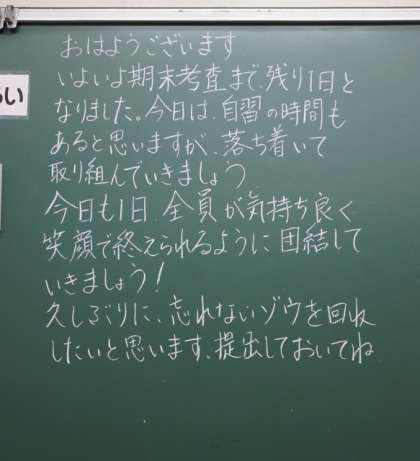 おはようございます
いよいよ期末考査まで、残り1日と
なりました。今日は、自習の時間も
あると思いますが、落ち着いて
取り組んでいきましょう
今日も1日、全員が気持ち良く
笑顔で終えられるように団結して
いきましょう!
久しぶりに、忘れないゾウを回収
したいと思います、提出しておいてね
い